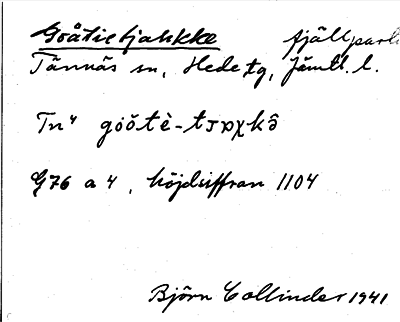 Goåtietjahkke fjällparti
Tännäs sn, Hede tg, Jämtl. l.
Tn⁴ göŏtè-tɪɒχkô
G76 a 4, höjdsiffran 1104
Björn Collinder 1941